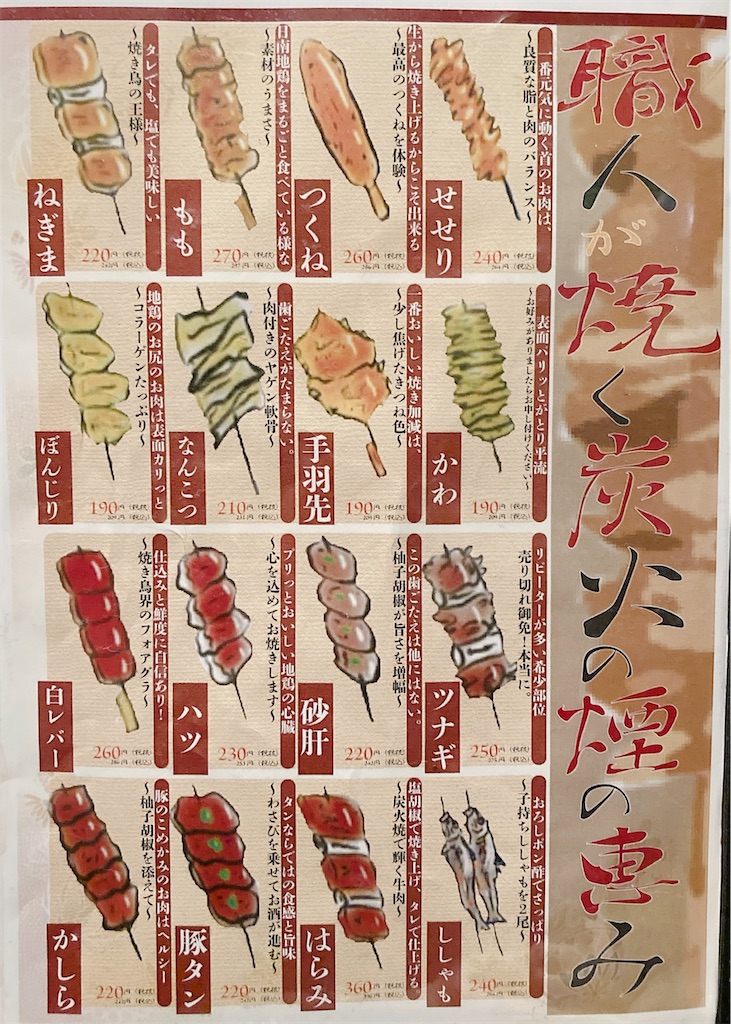 職人が焼く炭火の煙の恵み
一番元気に動く首のお肉は、
〜良質な脂と肉のバランス〜
せせり
240円(税抜)
264円(税込)
生から焼き上げるからこそ出来る
〜最高のつくねを体験〜
つくね
260円(税抜)
286円(税込)
日南地鶏をまるごと食べている様な
〜素材のうまさ〜
もも
270円(税抜)
297円(税込)
タレでも、塩でも美味しい
〜焼き鳥の王様〜
ねぎま
220円(税抜)
242円(税込)
表面パリッとがとり平流
〜お好みがありましたらお申し付けください〜
かわ
190円(税抜)
209円(税込)
一番おいしい焼き加減は、
〜少し焦げたきつね色〜
手羽先
190円(税抜)
209円(税込)
歯ごたえがたまらない。
〜肉付きのヤゲン軟骨〜
なんこつ
210円(税抜)
231円(税込)
地鶏のお尻のお肉は表面カリっと
〜コラーゲンたっぷり〜
ぼんじり
190円(税抜)
209円(税込)
リピーターが多い希少部位
売り切れ御免!本当に。
ツナギ
250円(税抜)
275円(税込)
この歯ごたえは他にはない。
〜柚子胡椒が旨さを増幅〜
砂肝
220円(税抜)
242円(税込)
プリっとおいしい地鶏の心臓
〜心を込めてお焼きします〜
ハツ
230円(税抜)
253円(税込)
仕込みと鮮度に自信あり!
〜焼き鳥界のフォアグラ〜
白レバー
260円(税抜)
286円(税込)
おろしポン酢でさっぱり
〜子持ちししゃもを2尾〜
ししゃも
240円(税抜)
264円(税込)
塩胡椒で焼き上げ、タレで仕上げる。
〜炭火焼で輝く牛肉〜
はらみ
360円(税抜)
396円(税込)
タンならではの食感と旨味
〜わさびを乗せてお酒が進む〜
豚タン
220円(税抜)
242円(税込)
豚のこめかみのお肉はヘルシー
〜柚子胡椒を添えて〜
かしら
220円(税抜)
242円(税込)